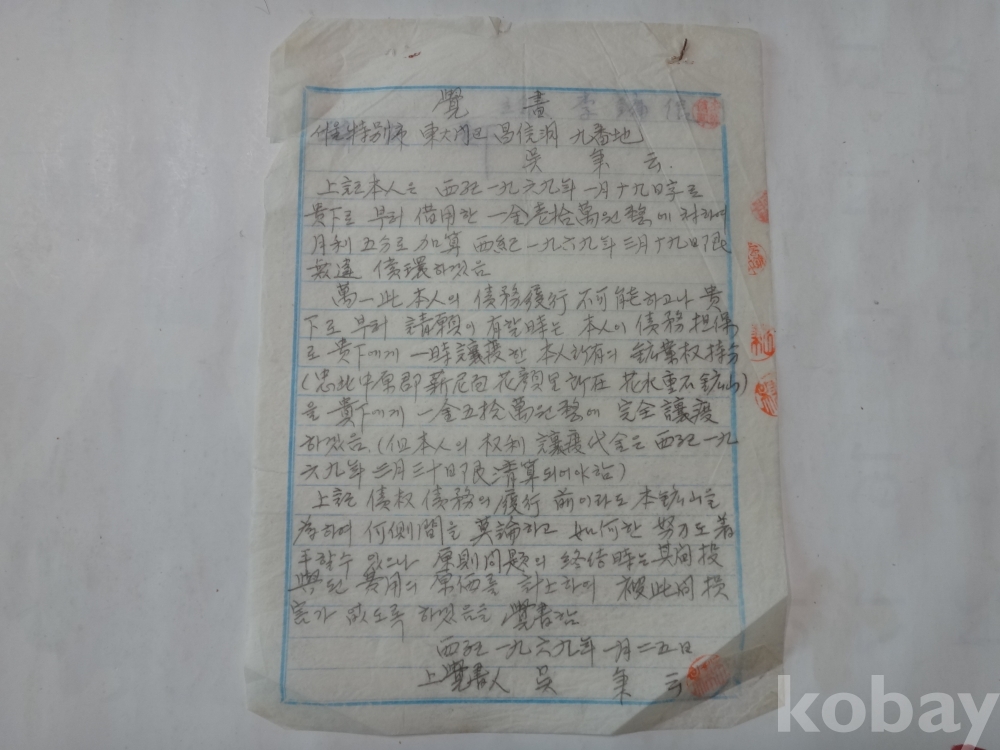 覺書
서울特別市 東大門区 昌信洞 九番地
吳 秉 云
上記本人은 西紀一九六九年 一月十九日字로
貴下로 부터 借用한 一金壱拾萬원整에 対하여
月利五分로 加算 西紀一九六九年三月十九日限
無違 債環하겠음
萬一此 本人의 債務履行 不可能하고나 貴
下로 부터 請願이 有할時는 本人이 債務担保
로 貴下에게 一時讓渡한 本人所有의 鉱業权持分
(忠北中原郡 薪尼面 花顔里所在 花水重石鉱山)
을 貴下에게 一金五拾萬원整에 完全讓渡
하겠음. (但本人의 权利 讓渡代金은 西紀一九
六九年 三月三十日限 清算되어야함)
上記 債权債務의 履行 前이라도 本鉱山을
為하여 何側間을 莫論하고 如何한 努力도 着
手할수 있으나 原則問題의 終結時는 其間投
與된 費用의 原価를 計上하여 彼此間損
害가 없도록 하겠음을 覺書함
西紀一九六九年 一月二五日
上覺書人 吳 秉 云
kobay